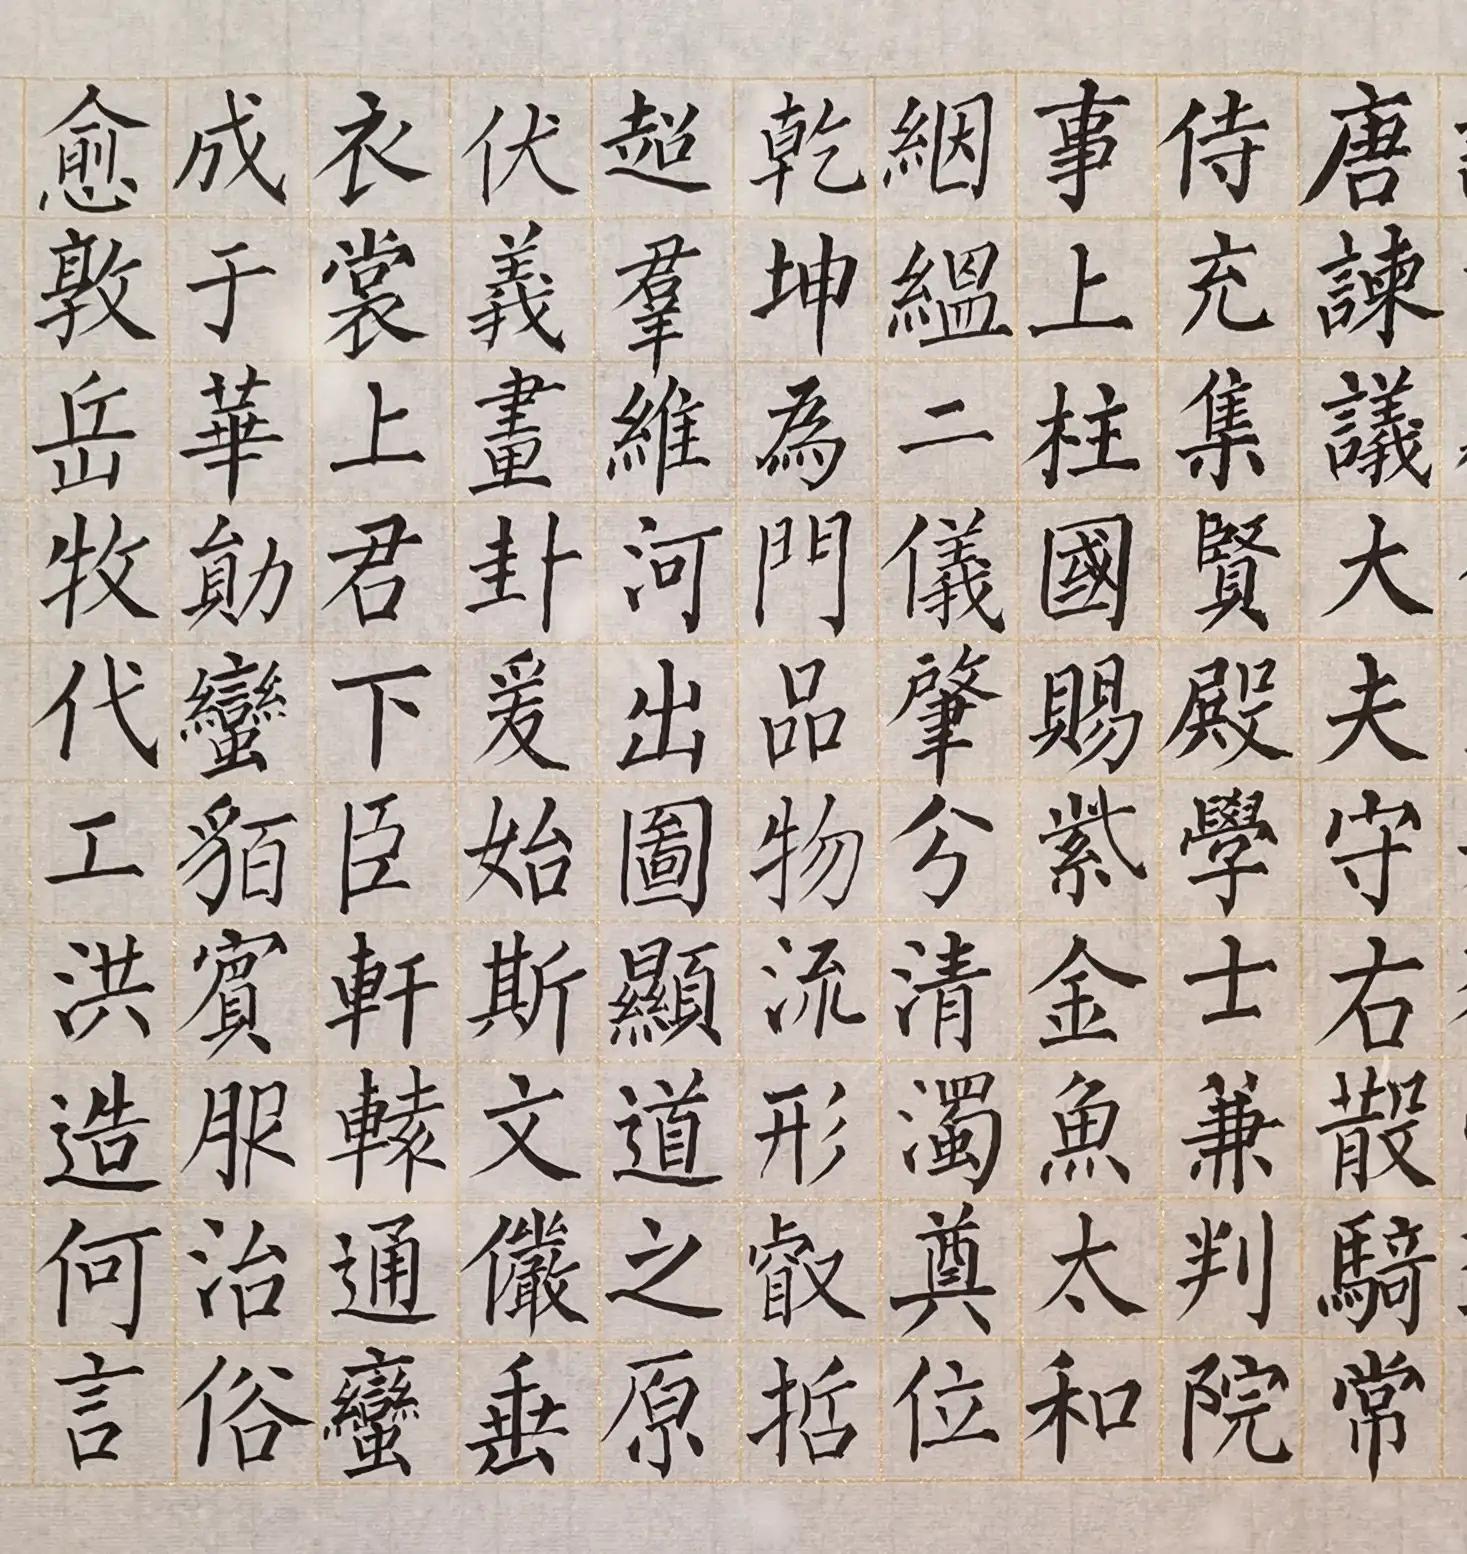 唐諫議大夫守右散騎常
侍充集賢殿學士兼判院
事上柱國賜紫金魚太和
絪縕二儀肇兮清濁奠位
乾坤為門品物流形叡哲
超羣維河出圖顯道之原
伏義畫卦爰始斯文儼垂
衣裳上君下臣軒轅通蠻
成于華勛蠻貊賓服治俗
愈敦岳牧代工洪造何言